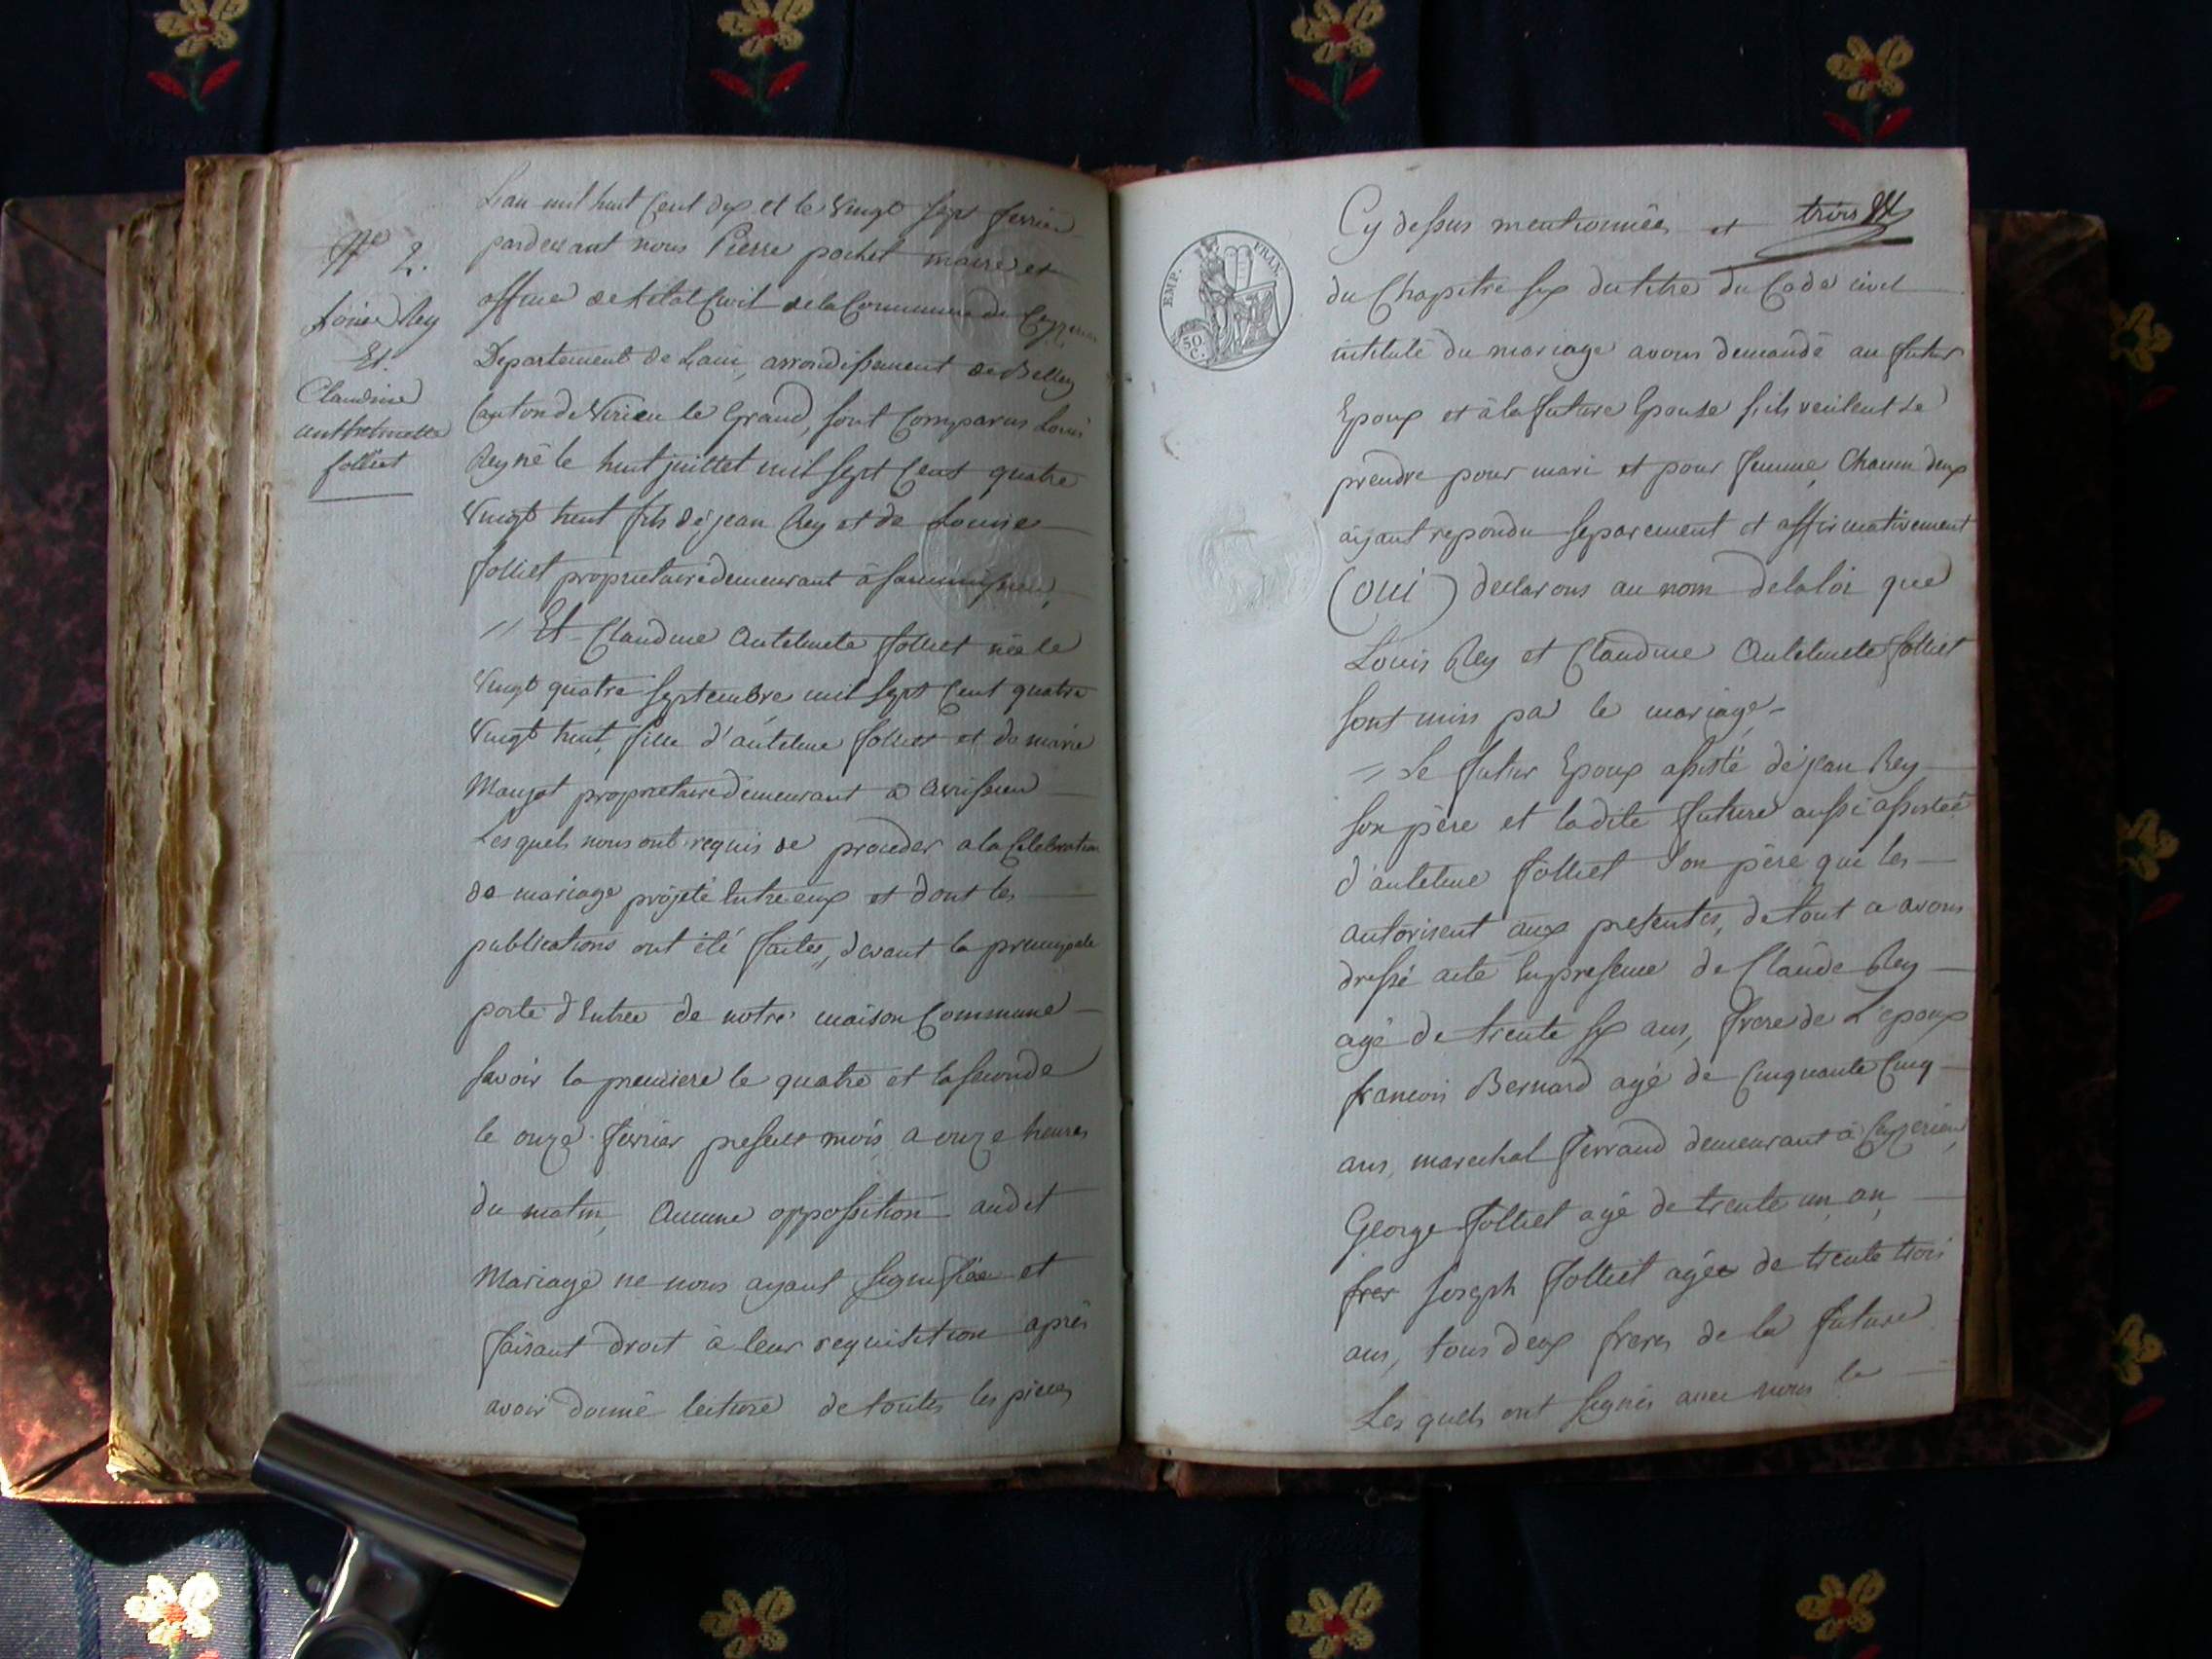 N° 2.
Louis Rey
Et
Claudine
anthelmette
folliet
L'an mil huit Cent dix et le Vingt sept fevrier
pardevant nous Pierre pochet maire et
officie de l'état Civil de la Commune de Ceyzerieu
Departement de Lain, arrondissement de Belley
Canton de Virieu le Grand, sont Comparus Louis
Rey né le huit juillet mil sept Cent quatre
Vingt huit fils de jean Rey et de Louise
folliet proprietaire demeurant à
// Et Claudine Antelmete folliet née le
Vingt quatre septembre mil sept Cent quatre
Vingt huit, fille d'antelme folliet et de marie
Maujot proprietaire demeurant a avrissieu
Les quels nous ont requis de proceder a la Celebration
de mariage projeté Entre eux et dont les
publications ont été faites, devant la principale
porte d'Entree de notre maison Commune
savoir la premiere le quatre et la seconde
le onze fevrier present mois a onze heures
du matin, Aucune oppossition audit
Mariage ne nous ayant signifiée et
faisant droit à leur requisition après
avoir donné lecture de toutes les pieces
EMP. FRAN.
50.
C.
Cy dessus mentionnées et trois
du Chapitre six du titre du Code civil
intitulé du mariage avons demandé au futur
Epoux et à la future Epouse s'ils veulent se
prendre pour mari et pour femme, Chacun deux
aijant repondu separement et affirmativement
(oui) declarons au nom de la loi que
Louis Rey et Claudine Antelmete folliet
sont unis par le mariage
= Le futur Epoux assisté de jean Rey
son père et ladite future aussi assistée
d'antelme folliet son père qui les
autorisent aux presentes, de tout ce avons
dressé acte En presence de Claude Rey
agé de trente six ans, frere de L'epoux
francois Bernard agé de Cinquante Cinq
ans, marechal ferrand demeurant à Ceyzerieu,
George folliet agé de trente un an,
frer Joseph folliet agée de trente trois
ans, tous deux freres de la future
Les quels ont signés avec nous le